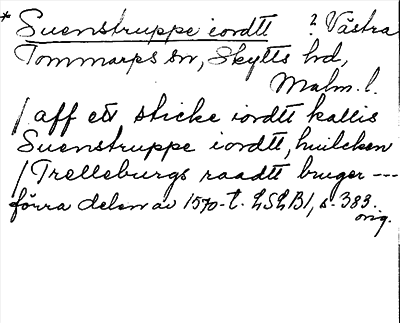 * Suenstruppe iordtt ? Västra
Tommarps sn, Skytts hd,
Malm. l.
/ aff ett sticke iordtt kallis
Suenstruppe iordtt, huilcken
/ Trelleburgs raadtt bruger ---
förra delen av 1570-t. LSLB1, s. 383.
orig.